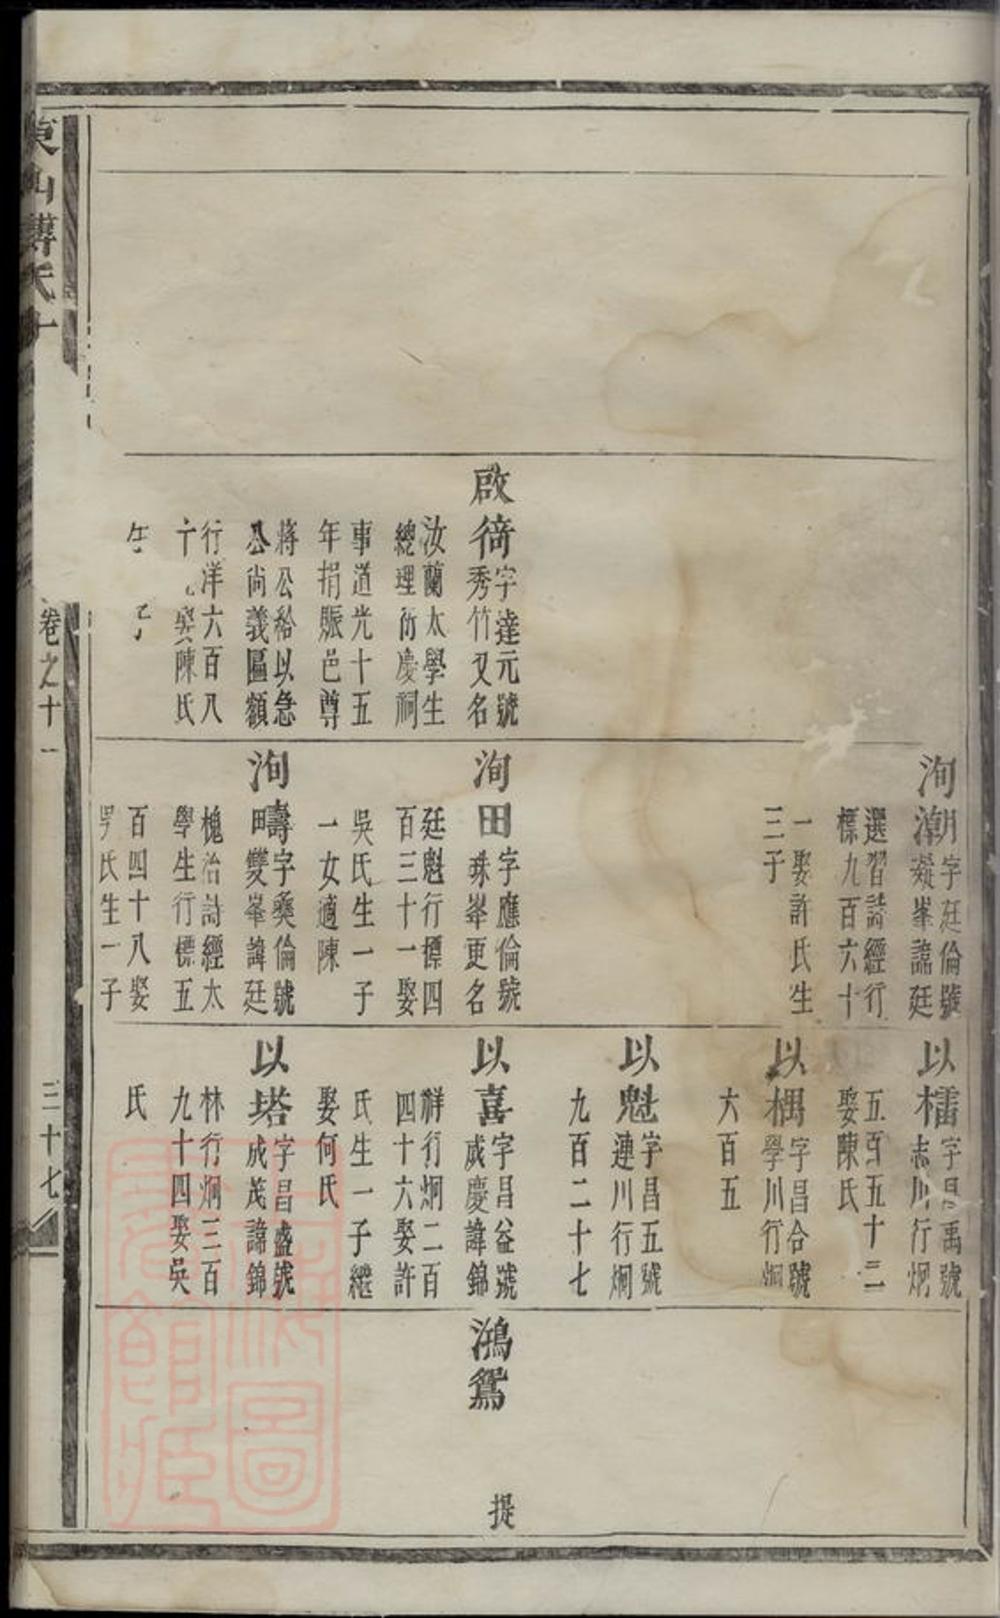 啟㣲
字達元號
秀竹又名
汝蘭太學生
總理衍慶祠
事道光十五
年捐賑邑尊
將公給以急
公尚義匾額
行洋六百八
十 娶陳氏
生 子
洵潮
字廷倫號
凝峯諱廷
選習詩經行
標九百六十
一娶許氏生
三子
洵田
字應倫號
珠峯更名
廷魁行標四
百三十一娶
吳氏生一子
一女適陳
洵疇
字彝倫號
雙峯諱廷
槐治詩經太
學生行標五
百四十八娶
氏生一子
以櫺
字昌禹號
志川行炯
五百五十二
娶陳氏
以楫
字昌合號
學川行炯
六百五
以魁
字昌五號
蓮川行炯
九百二十七
以喜
字昌益號
咸慶諱錦
祥行炯二百
四十六娶許
氏生一子繼
娶何氏
以塔
字昌盛號
成茂諱錦
林行炯三百
九十四娶吳
氏
鴻鴛
提
東山傅氏十
卷之十一
三十七